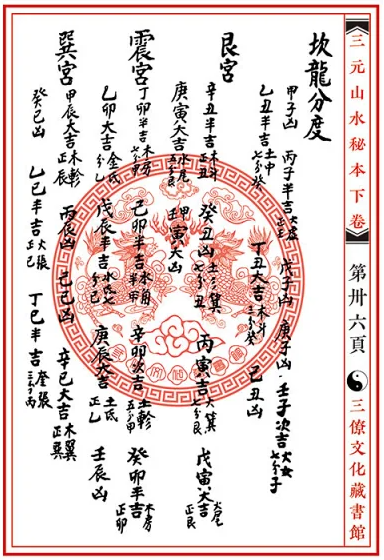 三元山水秘本下卷
第卅六頁
三僚文化藏書館
坎龍分度
甲子凶 丙子半吉 火虛正子 戊子凶 庚子凶 壬子次吉 火女七分子
乙丑半吉 土牛七分癸 丁丑大吉 木斗三分癸 己丑凶
艮宮
辛丑半吉 木斗正丑 癸丑凶 土箕七分丑 丙寅吉 火箕七分艮 戊寅大吉 火尾正艮
庚寅大吉 水尾五分艮 壬寅大凶 甲
震宮
丁卯半吉 木房 己卯半吉 水角半甲 辛卯次吉 土軫五分甲 癸卯平吉 木房正卯
乙卯大吉 金氐分乙 戊辰半吉 水氐七分乙 庚辰大吉 土氐正乙 壬辰凶
巽宮
甲辰大吉 木軫正辰 丙辰凶 己巳凶 辛巳大吉 木翼正巽
癸巳凶 乙巳半吉 火張正巳 丁巳半吉 奎張三分丙